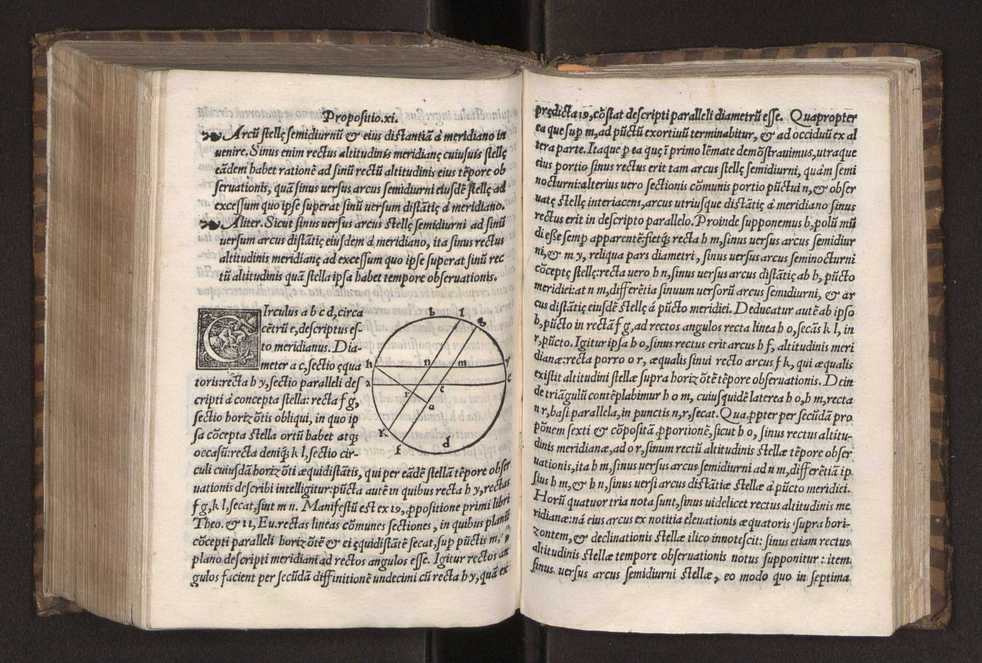 Propositio.xi.
Arcũ stellę semidiurnũ & eius distantiã à meridiano in
uenire. Sinus enim rectus altitudinis meridianę cuiusuis stellę
eãdem habet rationẽ ad sinũ rectũ altitudinis eius tẽpore ob
seruationis, quã sinus versus arcus semidiurni eiusdẽ stellę ad
excessum quo ipse superat sinũ versum distãtię à meridiano.
Aliter. Sicut sinus versus arcus stellę semidiurni ad sinũ
versum arcus distãtię eiusdem à meridiano, ita sinus rectus
altitudinis meridianę ad excessum quo ipse superat sinũ rec
tũ altitudinis quã stella ipsa habet tempore obseruationis.
CIrculus a b c d, circa
cẽtrũ e, descriptus es-
to meridianus. Dia-
meter a c, sectio ęqua
toris: rẽcta h y, sectio paralleli des
cripti à concepta stella: recta f g,
sectio horizõtis obliqui, in quo ip
sa cõcepta stella ortũ habet atq;
occasũ: recta deniq; k l, sectio cir-
culi cuiusdã horizõti æquidistãtis, qui per eãdẽ stellã tẽpore obser
uationis describi intelligitur: pũcta autẽ in quibus recta h y, rectas
f g, k l, secat, sint m n. Manifestũ est ex 19, ꝓpositione primi libri
Theo. & 11, Eu. rectas lineas cõmunes sectiones, in quibus planũ
cõcepti paralleli horizõtẽ & ei ęquidistãtẽ secat, sup pũctis m,
plano descripti meridiani ad rectos angulos esse. Igitur rectos an
gulos facient per secũdã diffinitionẽ undecimi cũ recta h y, quã ex
b l g
h n m y
a e c
r o
K
f d
prędicta 19, cõstat descripti paralleli diametrũ esse. Quapropter
ea que sup m, ad pũctũ exortiuũ terminabitur, & ad occiduũ ex al
tera parte. Itaque p ea quę ĩ primo lẽmate demõstrauimus, utraque
eius portio sinus rectus erit tam arcus stellę semidiurni, quàm semi
nocturni: alterius vero sectionis cõmunis portio pũctui n, & obser
uatę stellę interiacens, arcus utriusque distãtię à meridiano sinus
rectus erit in descripto parallelo. Proinde supponemus b, polũ mũ
di esse semp apparentẽ: fietq; recta h m, sinus versus arcus semidiur
ni, & m y, reliqua pars diametri, sinus versus arcus seminocturni
cõceptę stellę: recta uero h n, sinus versus arcus distãtię ab h, pũcto
meridiei: at n m, differẽtia sinuum versorũ arcus semidiurni, & ar
cus distãtię eiusdẽ stellę à pũcto meridiei. Deducatur autẽ ab ipso
h, pũcto in rectã f g, ad rectos angulos recta linea h o, secãs k l, in
r, pũcto. Igitur ipsa h o, sinus rectus erit arcus h f, altitudinis meri
dianæ: recta porro o r, æqualis sinui recto arcus f k, qui æqualis
existit altitudini stellæ supra horizõtẽ tẽpore obseruationis. Dein
de triãgulũ contẽplabimur h o m, cuiusquidẽ latera h o, h m, recta
n r, basi parallela, in punctis n, r, secat. Quaꝓpter per secũdã pro
põnem sexti & cõpositã ꝓportionẽ, sicut h o, sinus rectus altitu-
dinis meridianæ, ad o r, sinum rectũ altitudinis stellæ tẽpore obser
uationis, ita h m, sinus versus arcus semidiurni ad n m, differẽtiã ip
sius h m, & h n, sinus versi arcus distãtiæ stellæ à pũcto meridiei.
Horũ quatuor tria nota sunt, sinus uidelicet rectus altitudinis me
ridianæ: nã eius arcus ex notitia eleuationis æquatoris supra hori-
zontem, & declinationis stellæ ilico innotescit: sinus etiam rectus
altitudinis stellæ tempore obseruationis notus supponitur: item
sinus versus arcus semidiurni stellæ, eo modo quo in septima